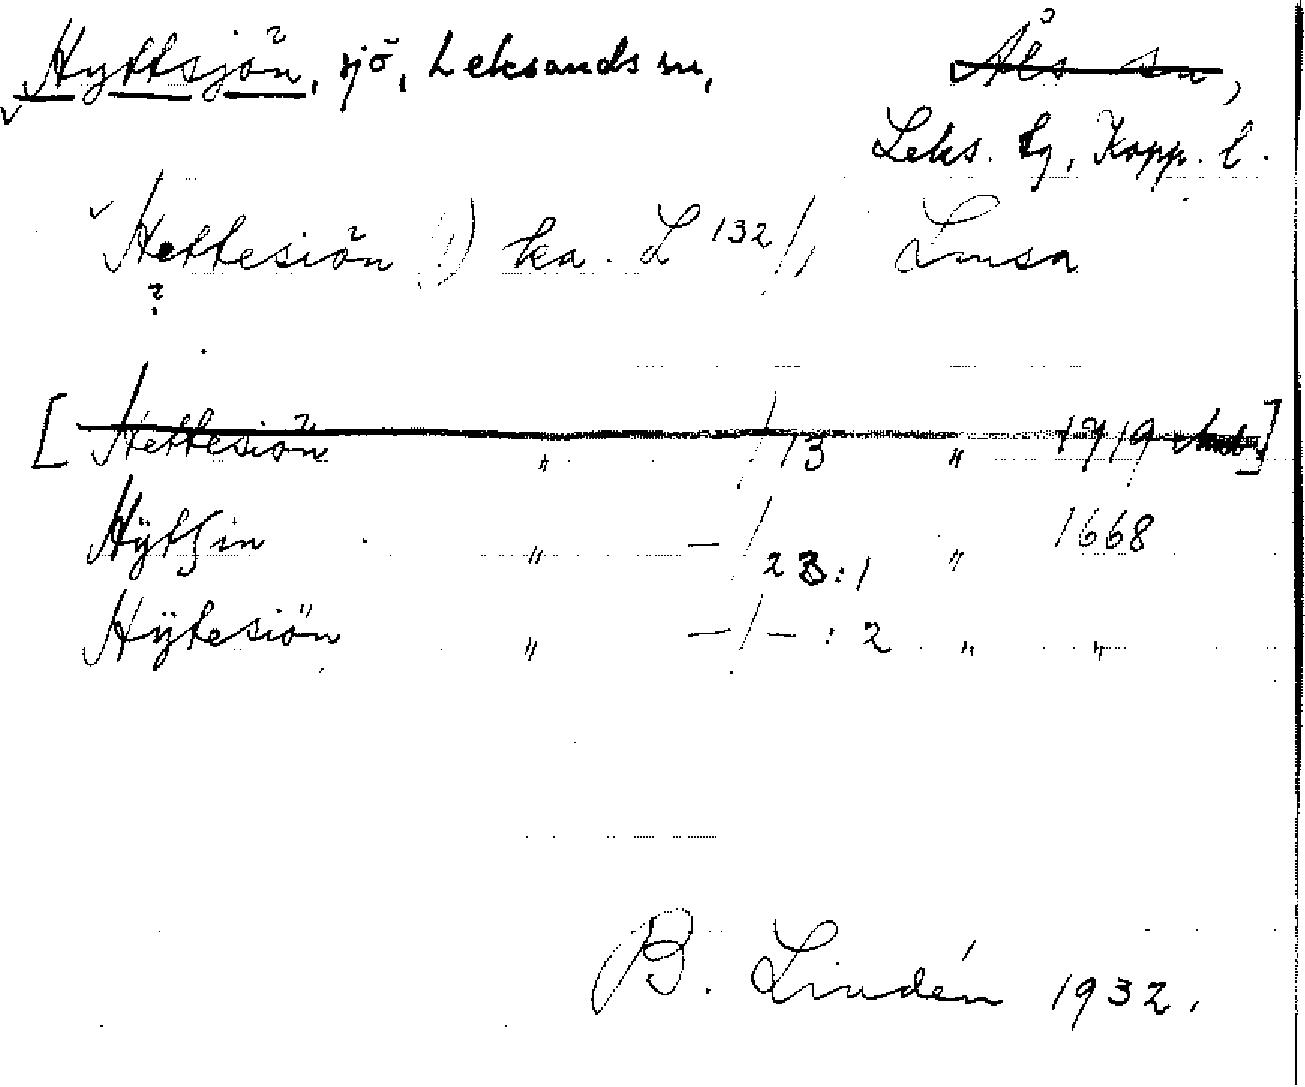 Hyttsjön, sjö, Leksands sn, Åls sn,
Leks. tg, Kopp. l.
Hettesiön (!) ka. L 132/1, Lmsa
?
[Hettesiön " /13 " 1719]
Hÿtsin " —/23:1 " 1668
Hÿtesiön " —/— : 2 " "
B. Lindén 1932.